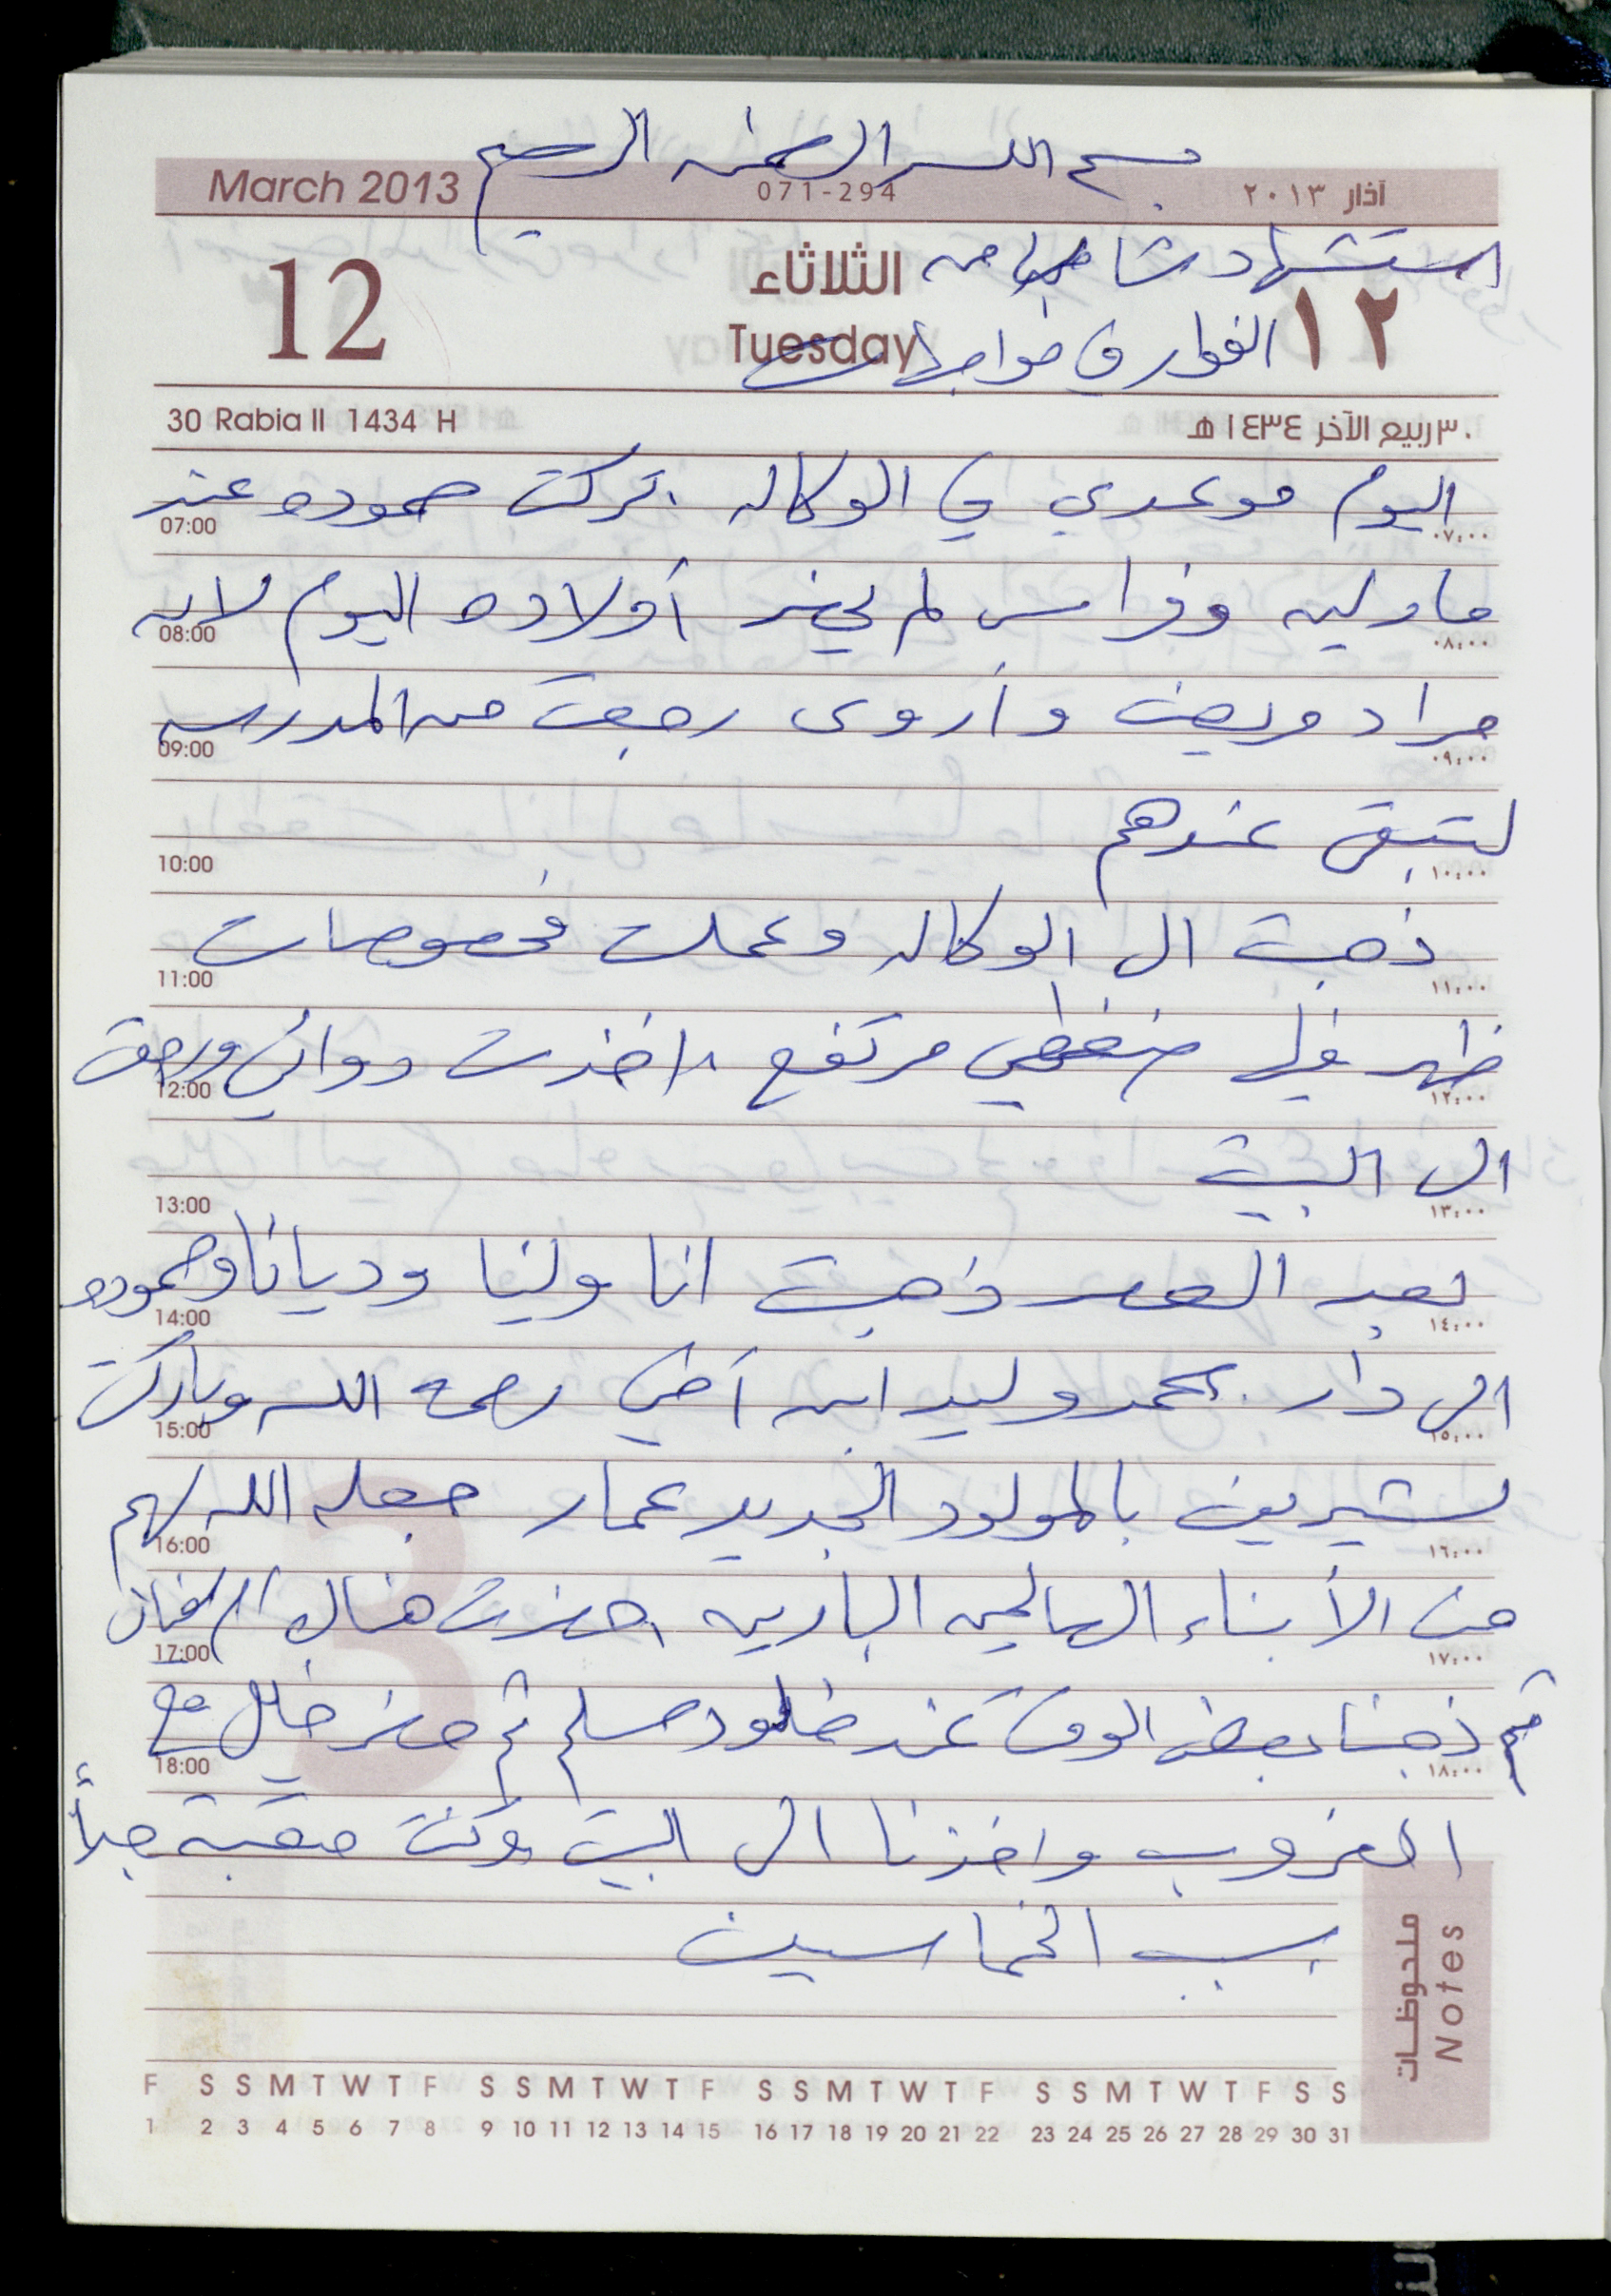 بسم الله الرحمن الرحيم
March 2013 071-294 آذار ٢٠١٣
استشهاد شاب من
12 الثلاثاء Tuesday ١٢
الفوار في مواجهات
30 Rabia II 1434 H ٣٠ ربيع الآخر ١٤٣٤ هـ
اليوم موعدي في الوكاله . تركت حموده عند
07:00 ٠٧:٠٠
مادلين وفراس لم يحضر أولاده اليوم لان
08:00 ٠٨:٠٠
مراد مريض وأروى رجعت من المدرسه
09:00 ٠٩:٠٠
لتبقى عندهم
10:00 ١٠:٠٠
ذهبت الى الوكاله وعملت فحوصات
11:00 ١١:٠٠
ظهر فيها ضغطي مرتفع اخذت دوائي ورجعت
12:00 ١٢:٠٠
الى البيت
13:00 ١٣:٠٠
بعد العصر ذهبت انا ولينا وديانا وحموده
14:00 ١٤:٠٠
الى دار محمد وليد ابن أخي رحمه الله وباركت
15:00 ١٥:٠٠
لشيرين بالمولود الجديد عمار جعله الله لهم
16:00 ١٦:٠٠
من الأبناء الصالحين البارين احضرت هناك
17:00 ١٧:٠٠
ثم ذهبنا بعض الوقت عند خلود مسلم ثم حضر خليل مع
18:00 ١٨:٠٠
الغروب واخذنا الى البيت وكنت متعبة جداً
بسبب الخماسين
ملحوظات Notes
F S S M T W T F S S M T W T F S S M T W T F S S M T W T F S S
1 2 3 4 5 6 7 8 9 10 11 12 13 14 15 16 17 18 19 20 21 22 23 24 25 26 27 28 29 30 31